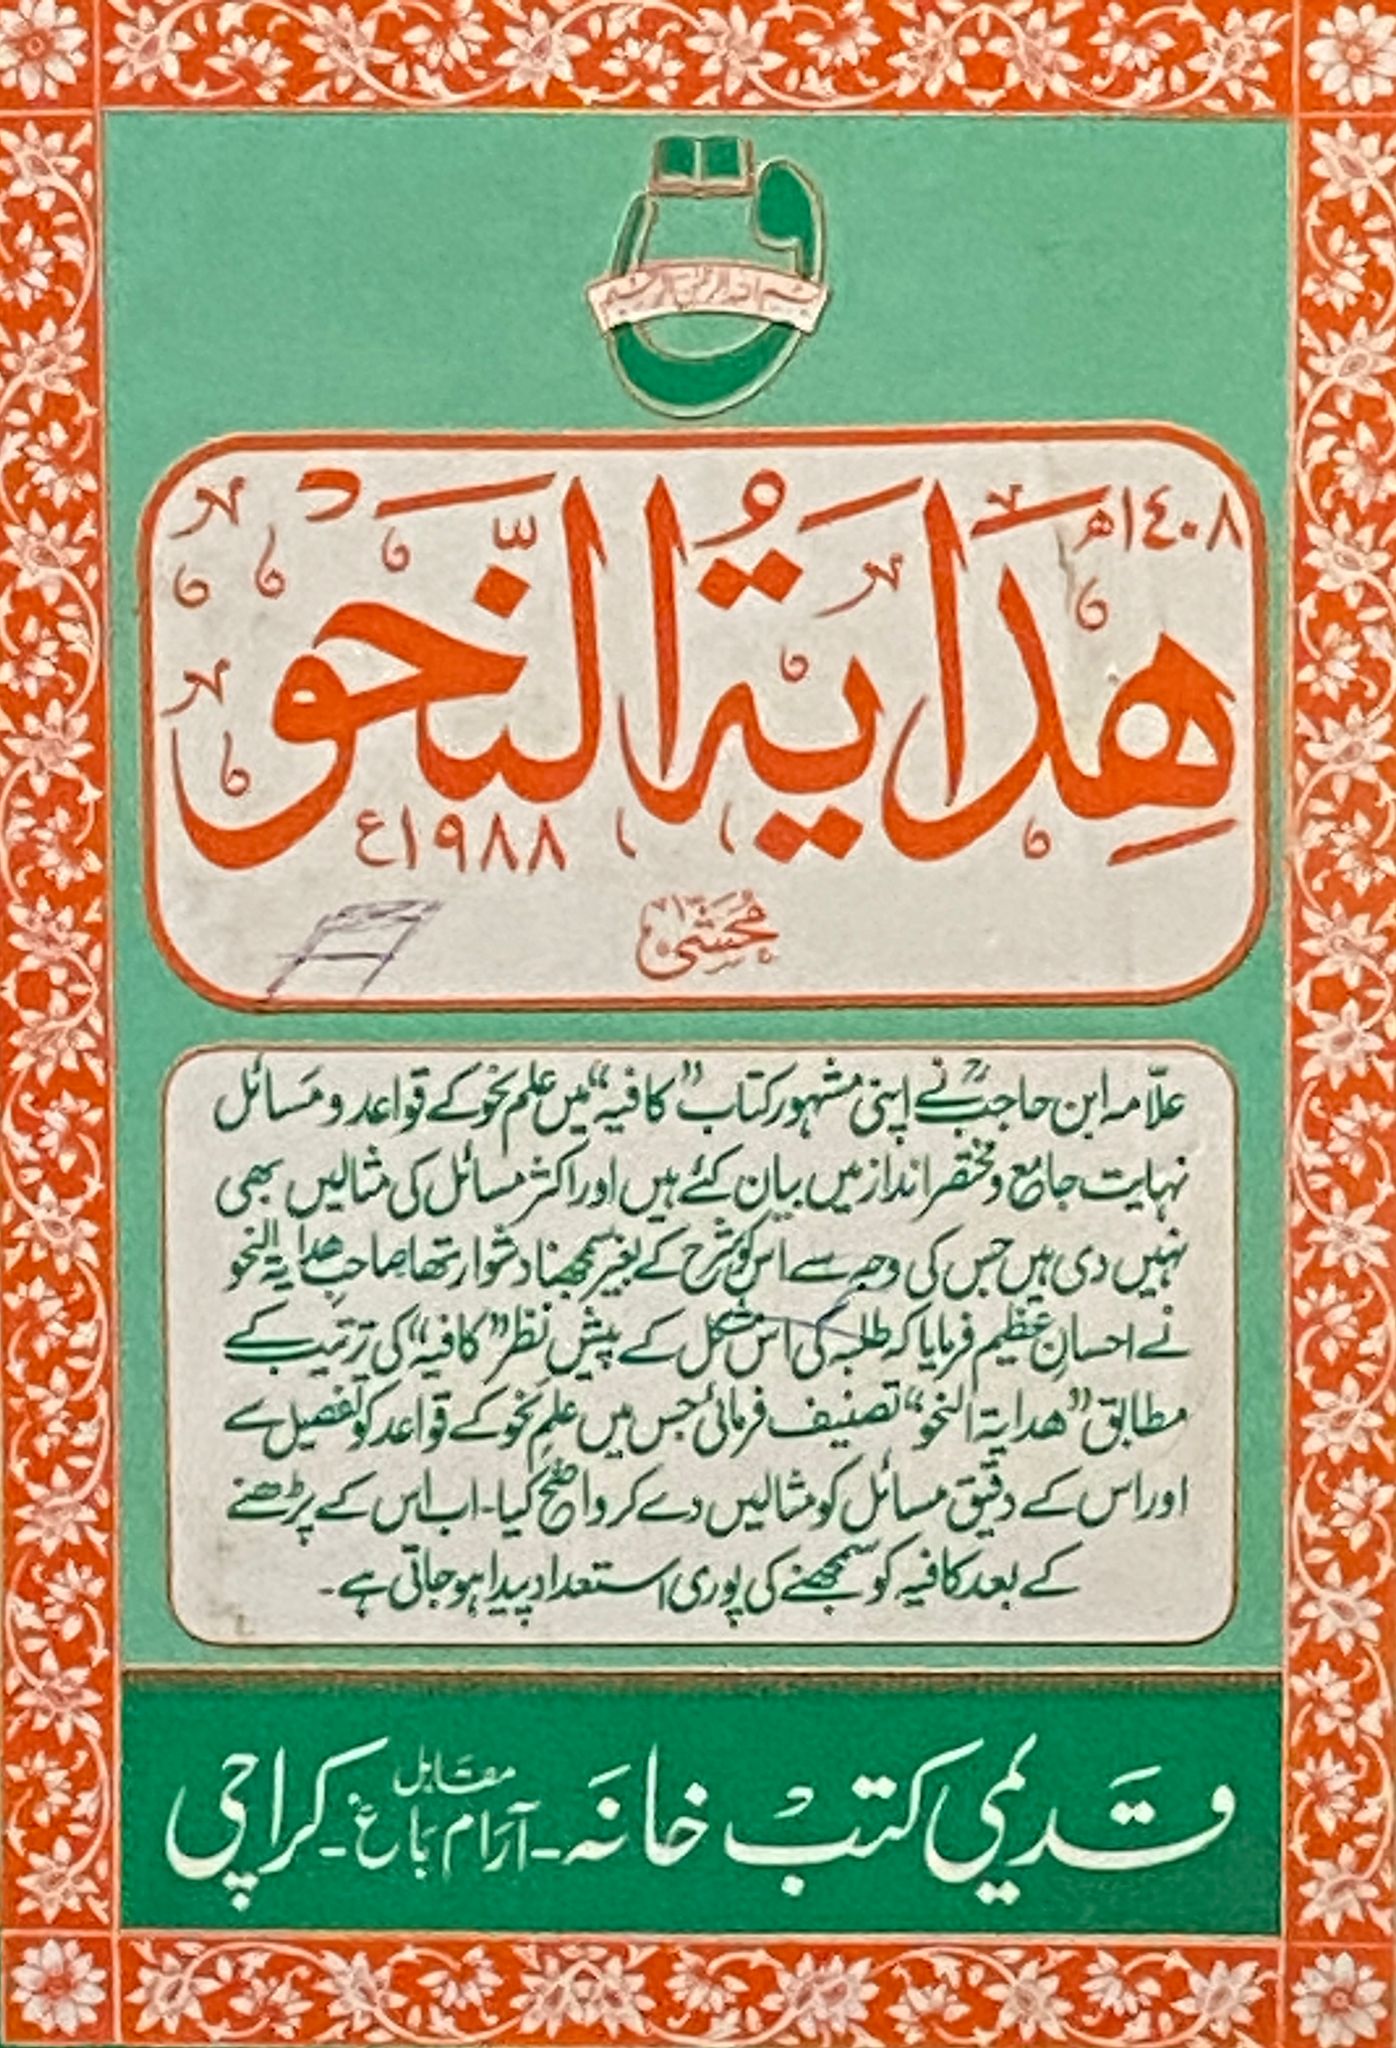 بسم اللہ الرحمن الرحیم
١٤٠٨ھ
هِدَايَةُ النَّحْو
١٩٨٨ع
مُحَشّٰی
علّامہ ابن حاجبؒ نے اپنی مشہور کتاب "کافیہ" میں علم نحو کے قواعد و مَسائل
نہایت جامع و مختصر انداز میں بیان کئے ہیں اور اکثر مسائل کی مثالیں بھی
نہیں دی ہیں جس کی وجہ سے اس کو شرح کے بغیر سمجھنا دشوار تھا صاحبِ هدایة النحو
نے احسانِ عظیم فرمایا کہ طلبہ کی اس مشکل کے پیش نظر "کافیہ" کی ترتیب کے
مطابق "هدایة النحو" تصنیف فرمائی جس میں علمِ نحو کے قواعد کو تفصیل سے
اور اس کے دقیق مسائل کو مثالیں دے کر واضح کیا۔ اب اس کے پڑھنے
کے بعد کافیہ کو سمجھنے کی پوری استعداد پیدا ہو جاتی ہے۔
قدیمی کتب خانہ ۔ مقابل آرام باغ ۔ کراچی